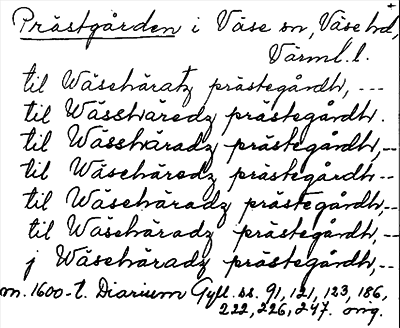 Prästgården i Väse sn, Väse hd,
Värml. l.
til Wäsehäratz prästegårdh, ---
til Wässhäredz prästegårdh.
til Wässhäradz prästegårdh, --
til Wäsehäredz prästegårdh --
til Wäsehäradz prästegårdh, --
til Wäsehäradz prästegårdh, --
j Wäsehäradz prästegårdh, --
m. 1600-t. Diarium Gyll. ss. 91, 121, 123, 186,
222, 226, 247. orig.